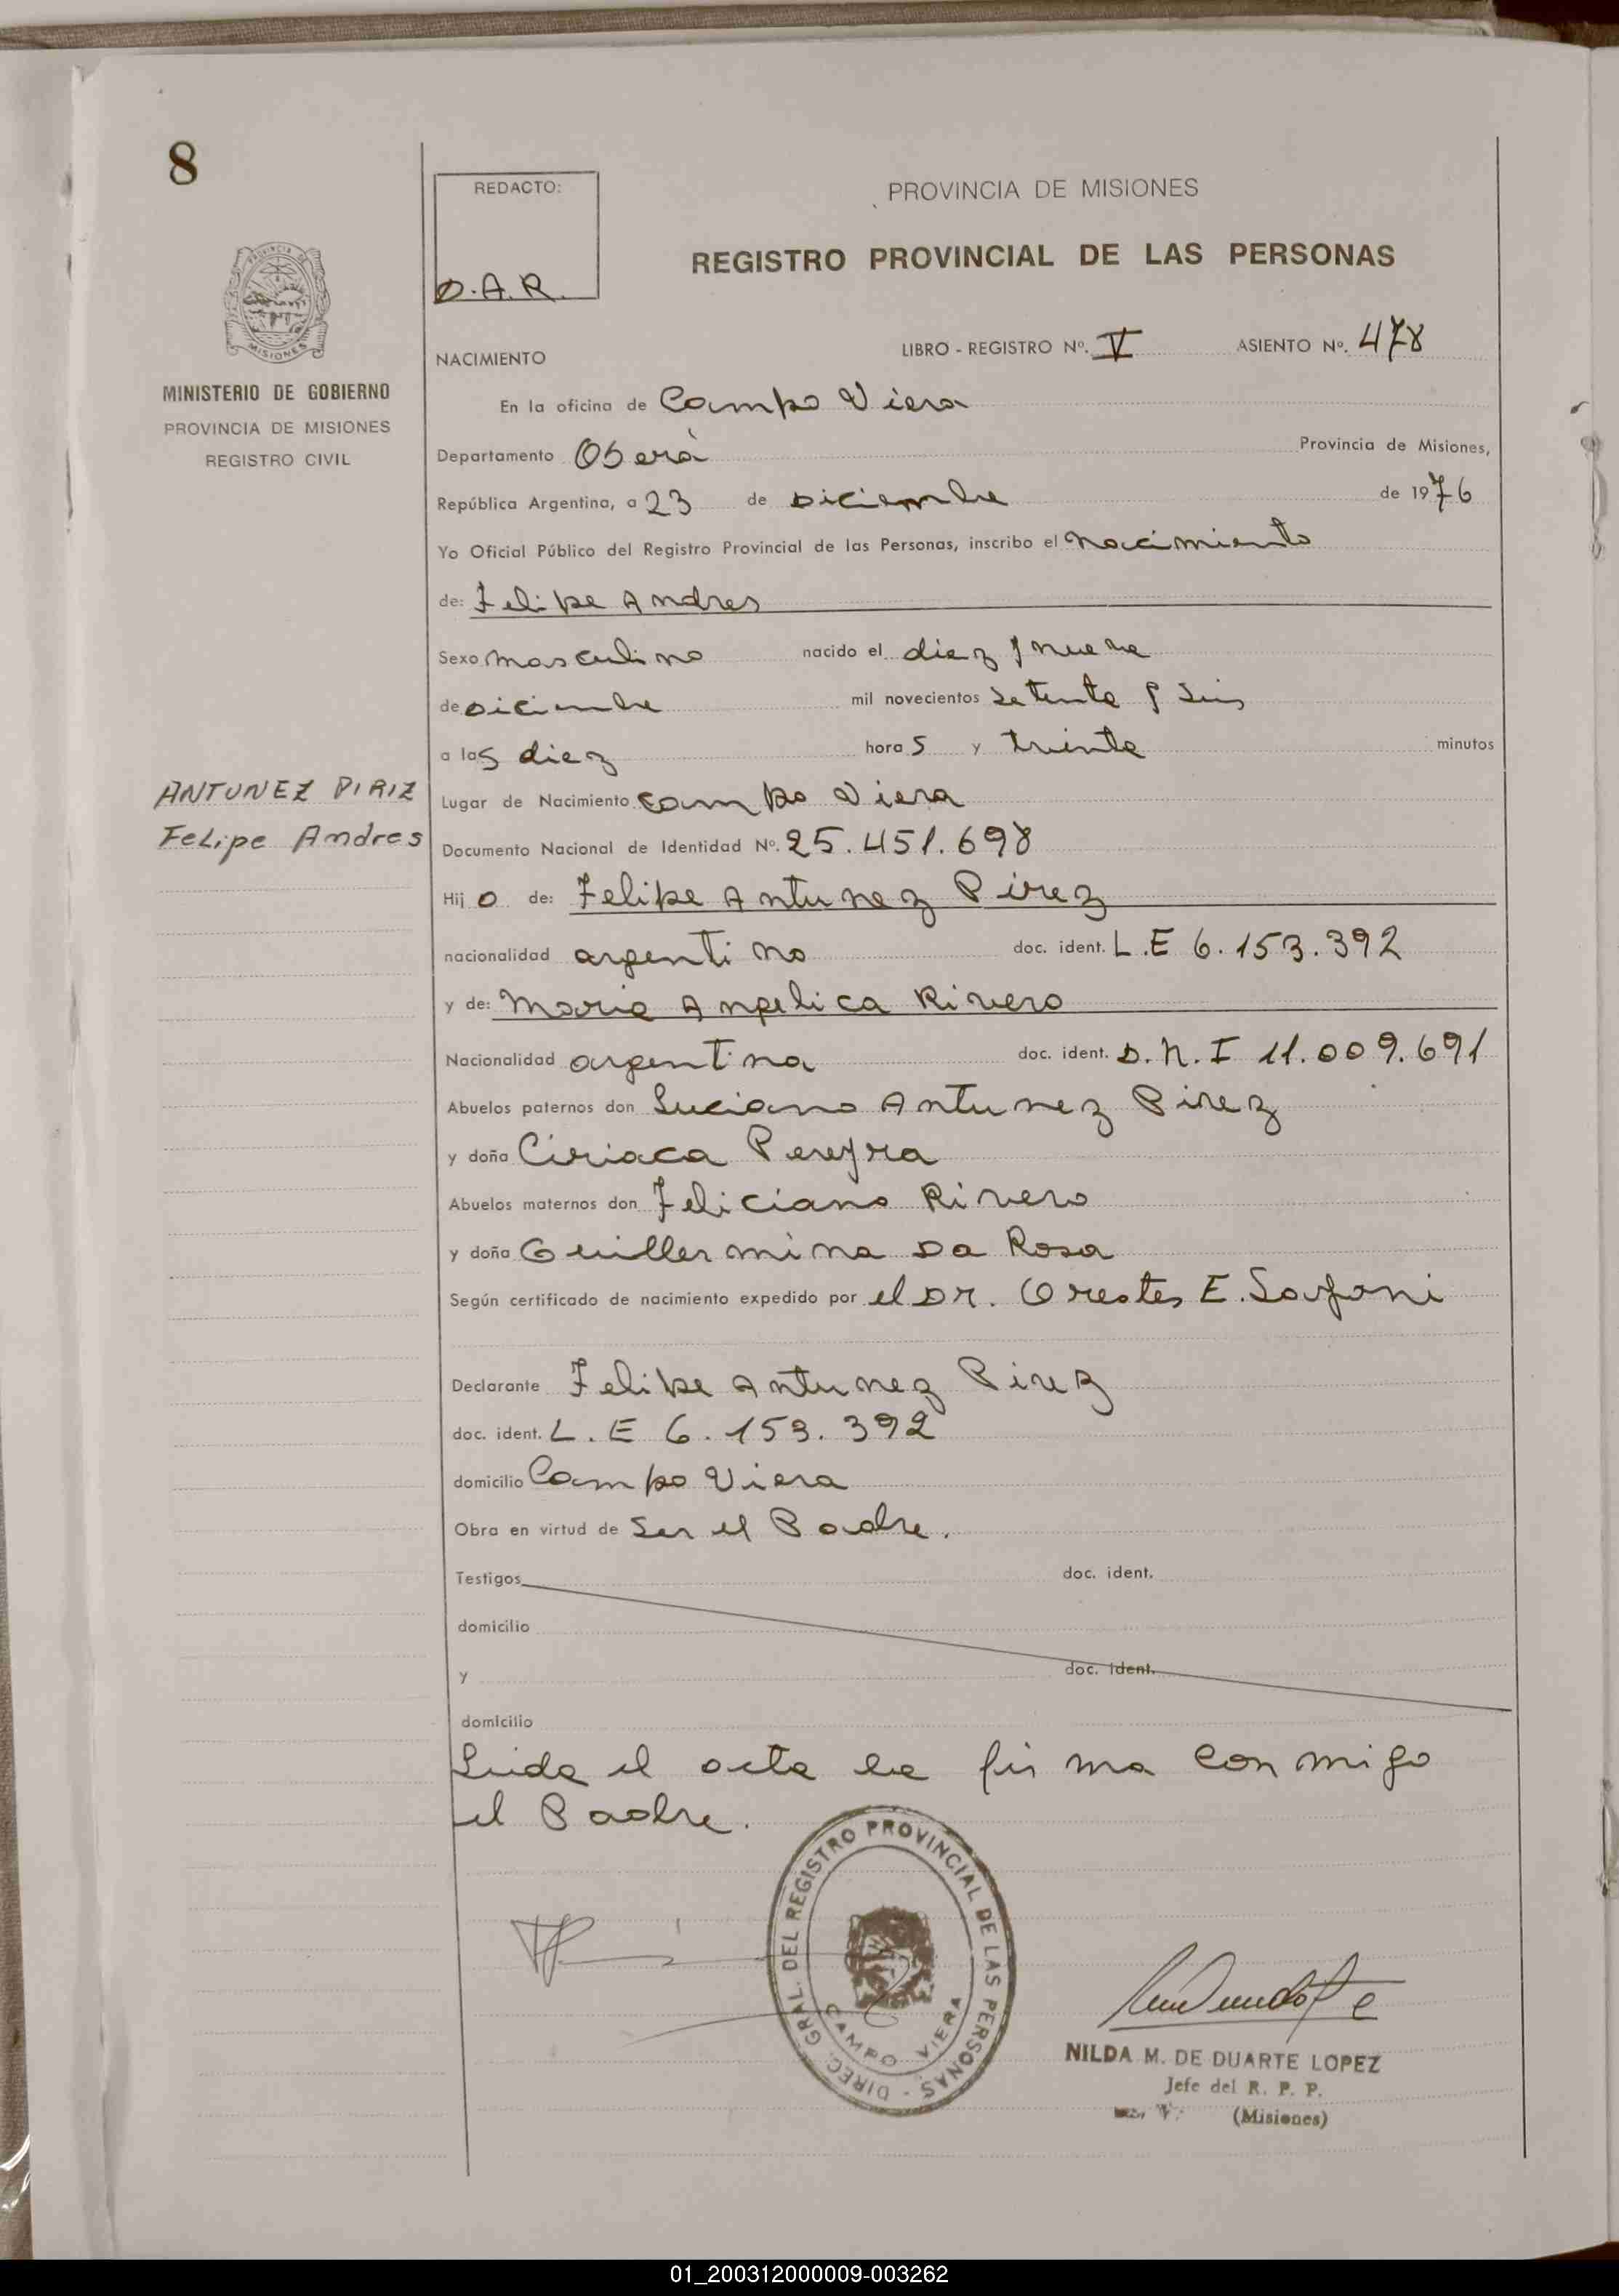 8
REDACTO:
O.A.R.
PROVINCIA DE MISIONES
REGISTRO PROVINCIAL DE LAS PERSONAS
PROVINCIA DE
MISIONES
MINISTERIO DE GOBIERNO
PROVINCIA DE MISIONES
REGISTRO CIVIL
NACIMIENTO LIBRO - REGISTRO Nº. V ASIENTO Nº. 478
En la oficina de Campo Viera
Departamento Oberà Provincia de Misiones,
República Argentina, a 23 de Diciembre de 1976
Yo Oficial Público del Registro Provincial de las Personas, inscribo el nacimiento
de: Felipe Andres
Sexo masculino nacido el diez y nueve
de Diciembre mil novecientos setenta y seis
a las diez horas y treinta minutos
ANTUNEZ PIRIZ
Felipe Andres
Lugar de Nacimiento Campo Viera
Documento Nacional de Identidad Nº. 25.451.698
Hijo de: Felipe Antunez Pirez
nacionalidad argentino doc. ident. L.E 6.153.392
y de: Maria Angelica Rivero
Nacionalidad argentina doc. ident. D.N.I 11.009.691
Abuelos paternos don Luciano Antunez Pirez
y doña Ciriaca Pereyra
Abuelos maternos don Feliciano Rivero
y doña Guillermina Da Rosa
Según certificado de nacimiento expedido por el Dr. Orestes E.
Declarante Felipe Antunez Pirez
doc. ident. L.E 6.153.392
domicilio Campo Viera
Obra en virtud de Ser el Padre.
Testigos doc. ident.
domicilio
y doc. ident.
domicilio
Leida el acta la firma conmigo
el Padre.
DIREC. GRAL. DEL REGISTRO PROVINCIAL DE LAS PERSONAS -
CAMPO VIERA
NILDA M. DE DUARTE LOPEZ
Jefe del R. P. P.
(Misiones)
01_200312000009-003262